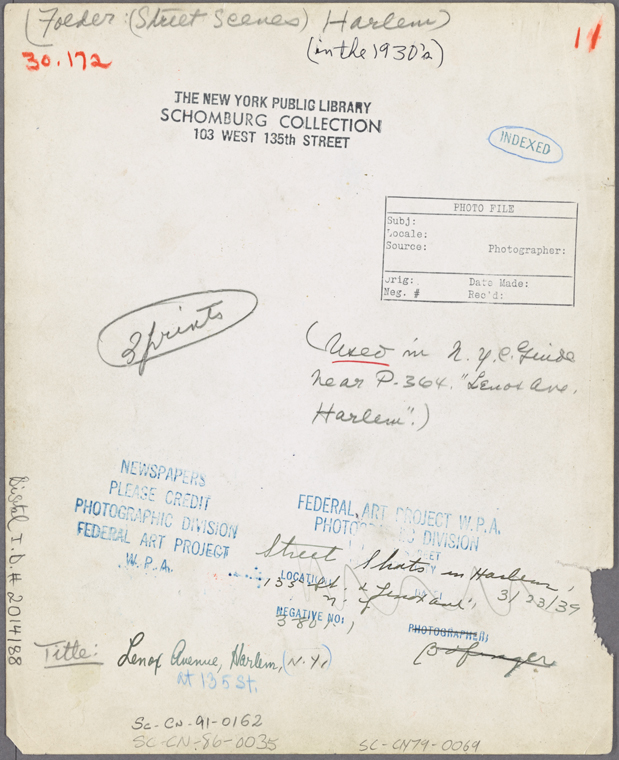 (Folder: (Street Scenes) Harlem)
(in the 1930's)
11
30.172
THE NEW YORK PUBLIC LIBRARY
SCHOMBURG COLLECTION
103 WEST 135th STREET
INDEXED
PHOTO FILE
Subj:
Locale:
Source: Photographer:
Orig: Date Made:
Neg. # Rec'd:
2 prints
(Used in N.Y.C. Guide
near P-364. "Lenox Ave.
Harlem".)
NEWSPAPERS
PLEASE CREDIT
PHOTOGRAPHIC DIVISION
FEDERAL ART PROJECT
W.P.A.
FEDERAL ART PROJECT W.P.A.
PHOTOGRAPHIC DIVISION
STREET
Street Shots in Harlem,
LOCATION
135 St. & Lenox ave., 3/23/39
N.Y.
NEGATIVE NO:
PHOTOGRAPHER:
Digital I.D. # 2014188
Title: Lenox Avenue, Harlem, (N.Y.)
at 135 St.
SC-CN-91-0162
SC-CN-86-0035
SC-CN79-0069